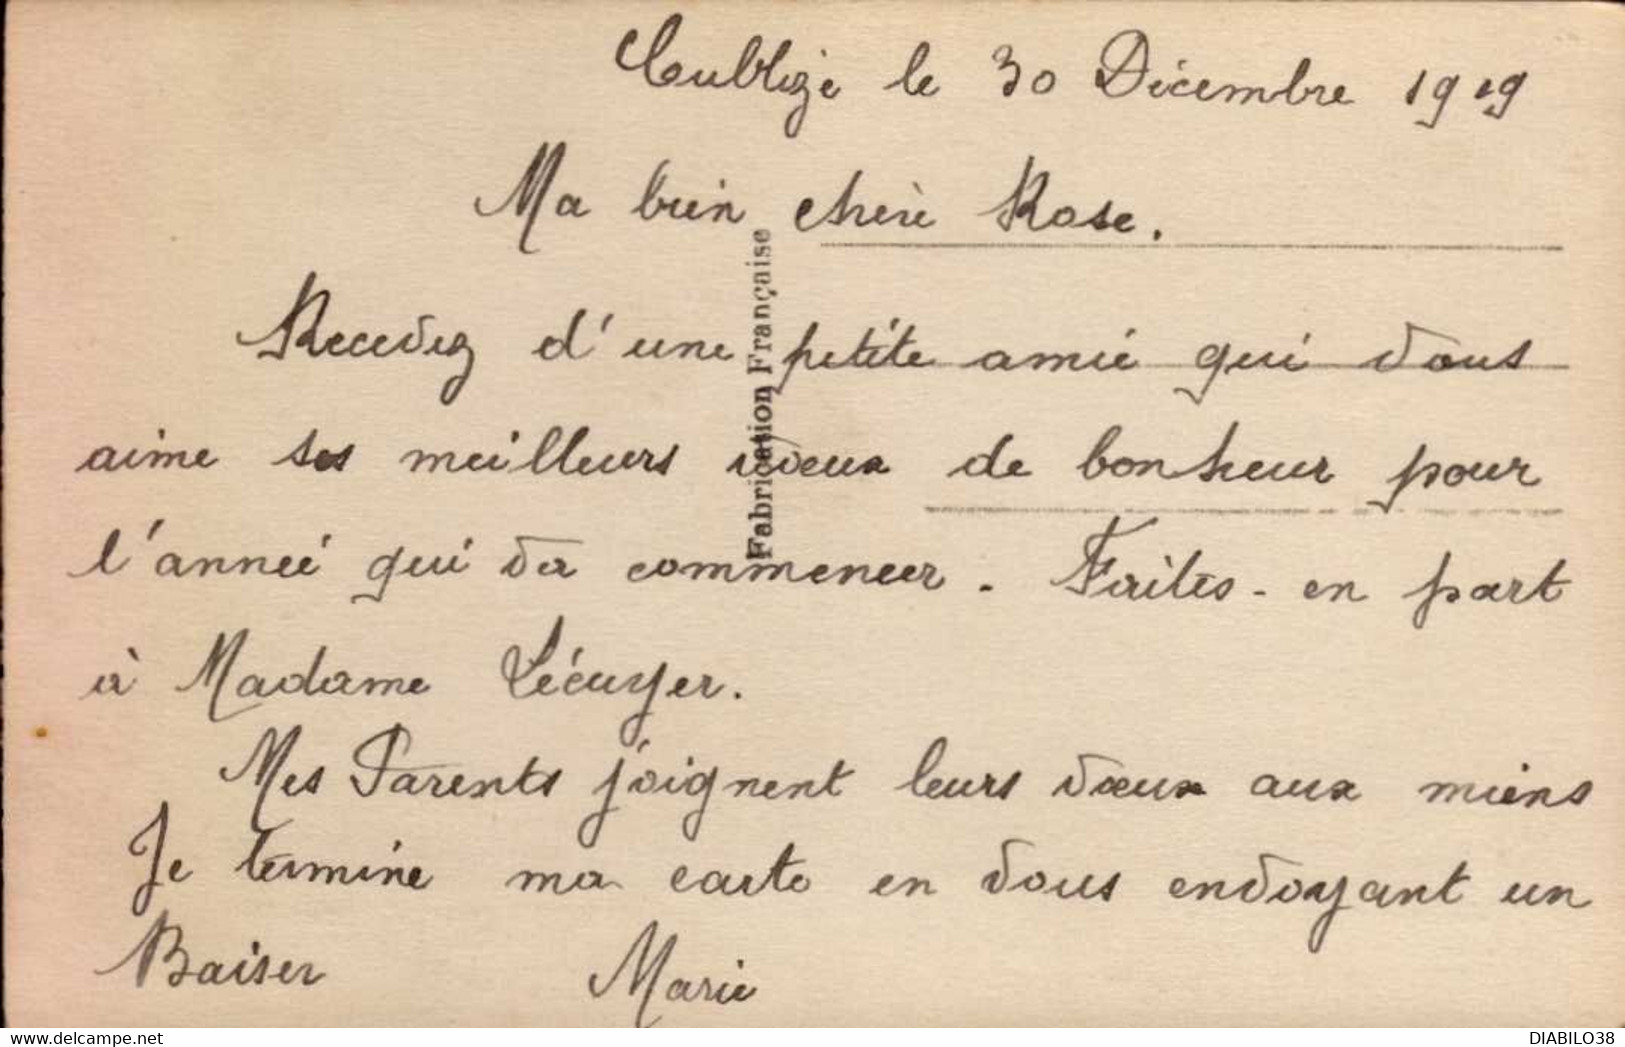 Cublize le 30 Décembre 1919
Ma bien chère Rose.
Recevez d'une petite amie qui vous
aime ses meilleurs voeux de bonheur pour
l'année qui va commencer. Faites-en part
à Madame Lécuyer.
Mes Parents joignent leurs vœux aux miens
Je termine ma carte en vous envoyant un
Baiser Marie
Fabrication Française
DIABILO38